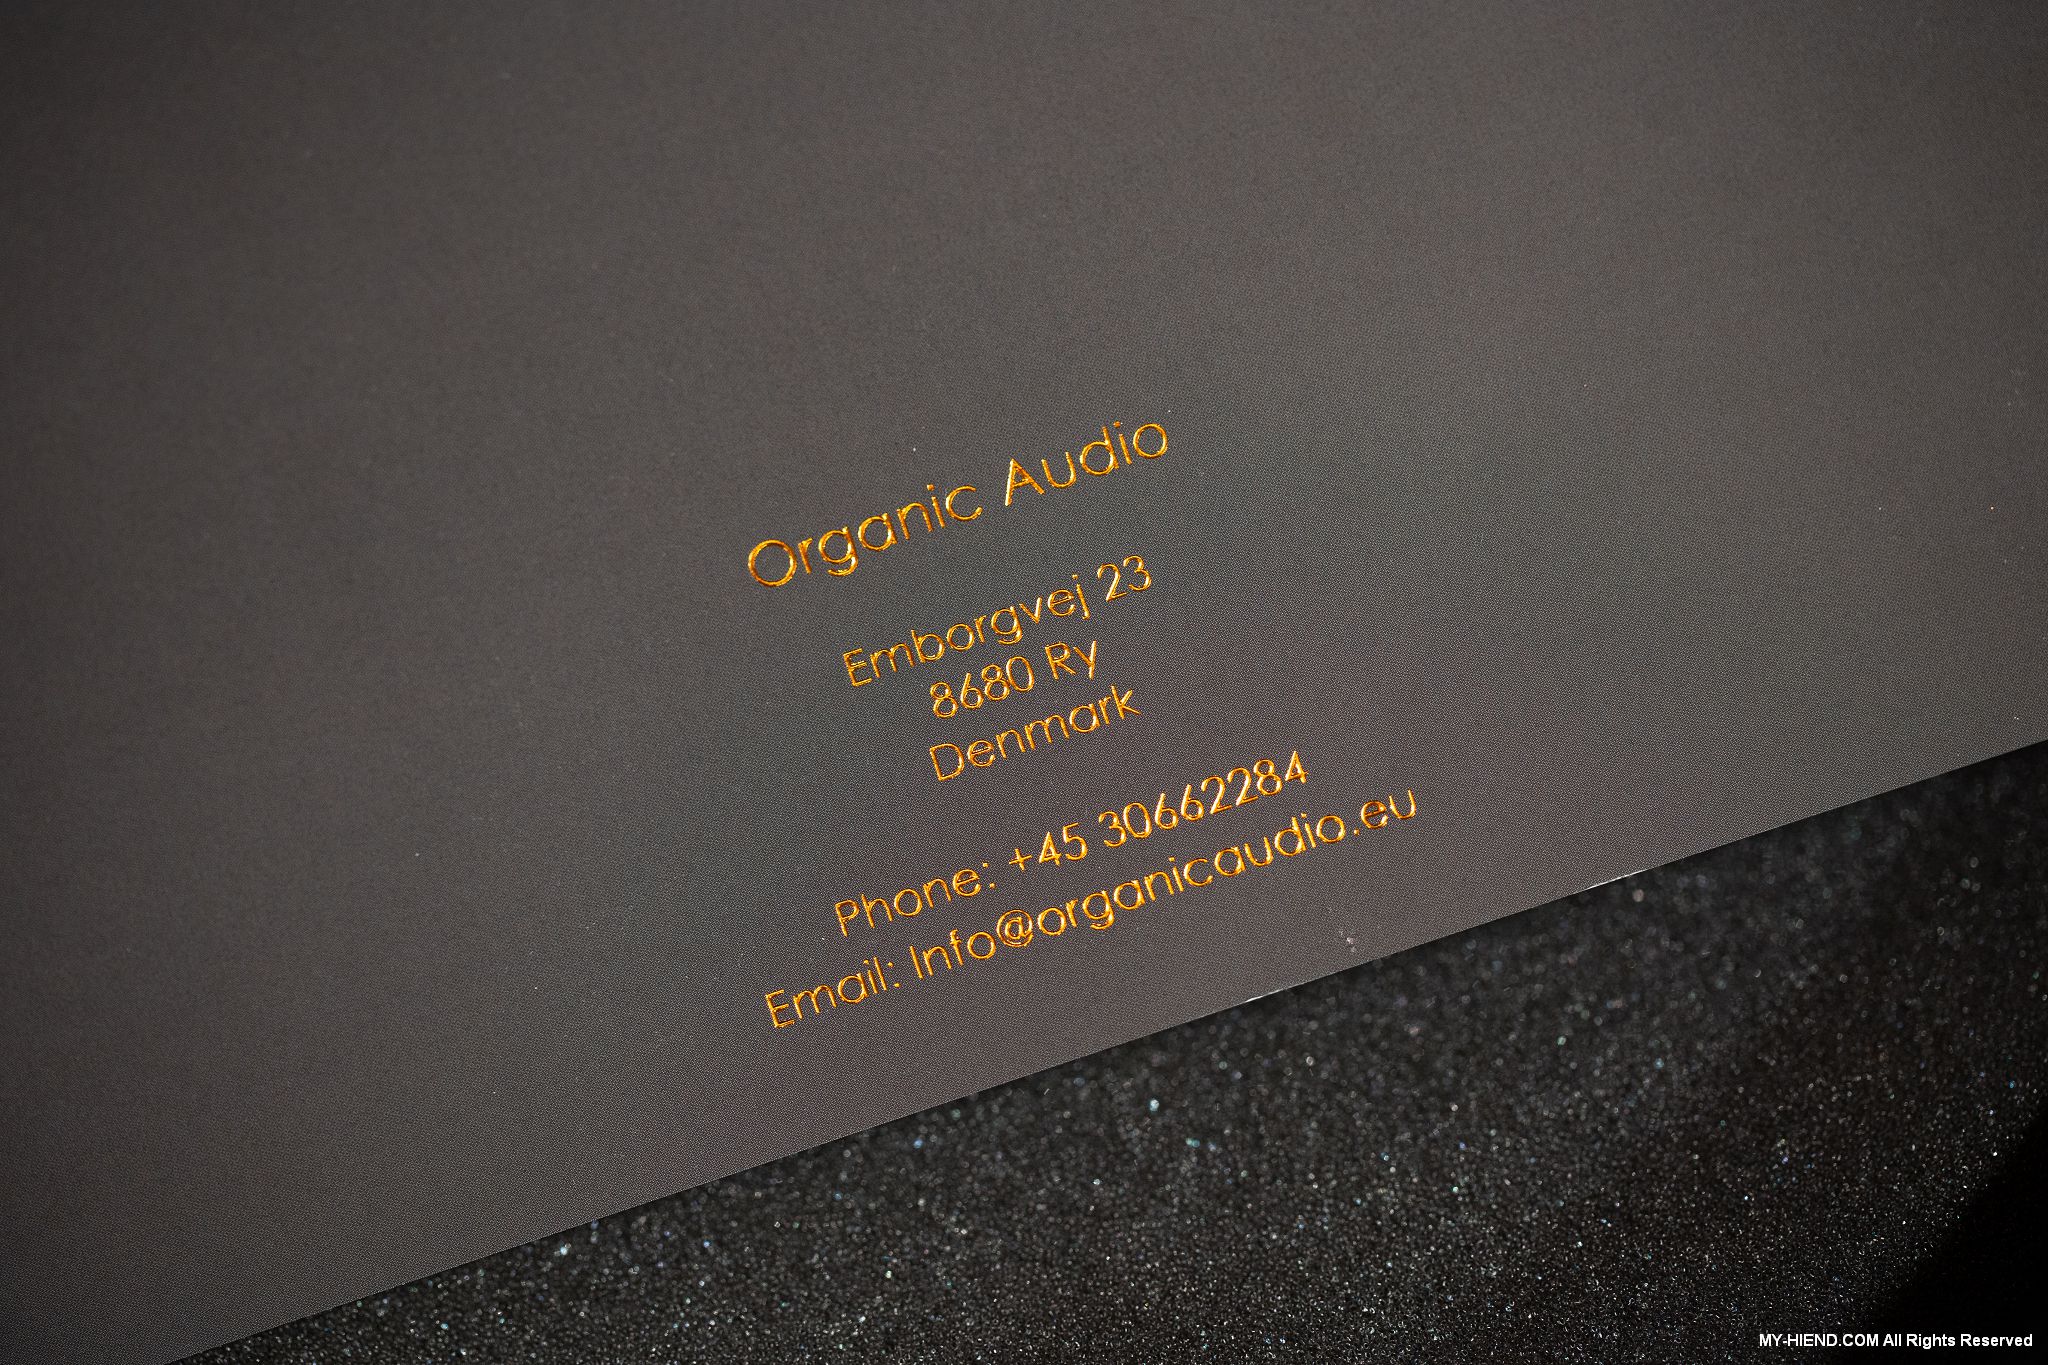 Organic Audio
Emborgvej 23
8680 Ry
Denmark
Phone: +45 30662284
Email: Info@organicaudio.eu
MY-HIEND.COM All Rights Reserved